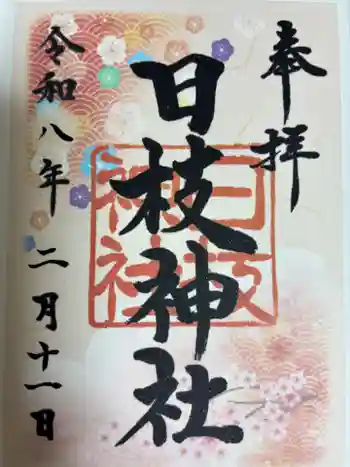 奉拝
日枝神社
日枝神社
令和八年 二月十一日